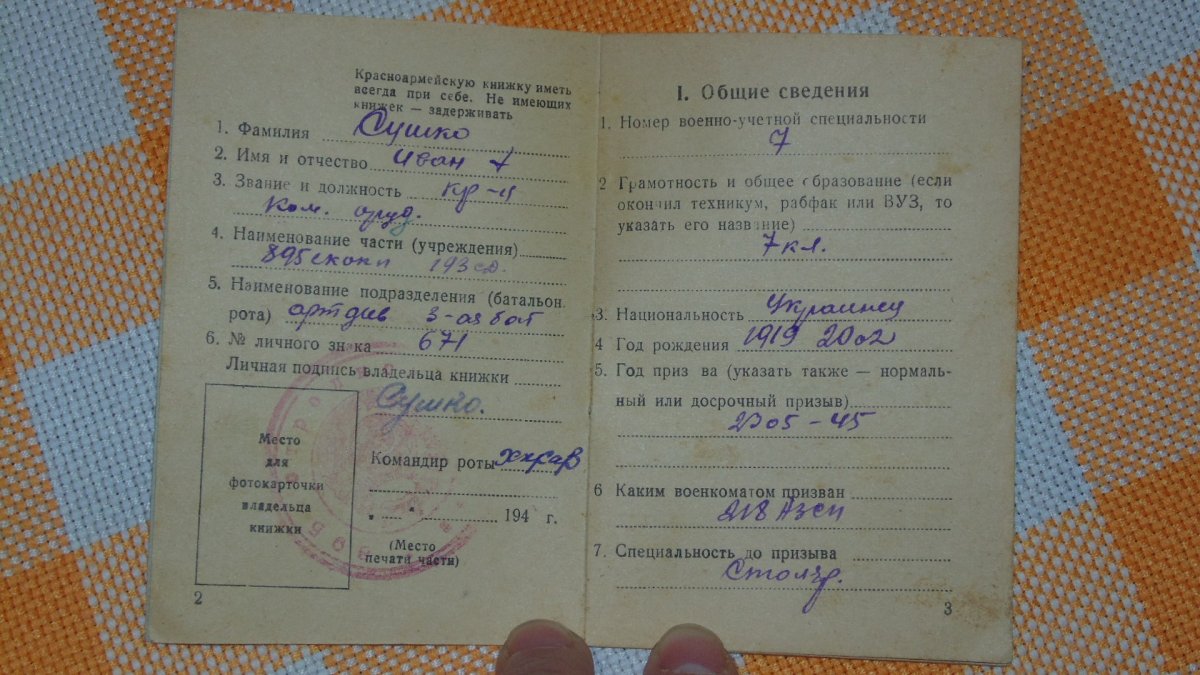 Красноармейскую книжку иметь
всегда при себе. Не имеющих
книжек — задерживать
1. Фамилия Сушко
2. Имя и отчество Иван
3. Звание и должность кр-ц
ком. оруд.
4. Наименование части (учреждения)
895 193 сд.
5. Наименование подразделения (батальон,
рота) артдив 3-ая бат
6. № личного знака 671
Личная подпись владельца книжки
Сушко.
Место
для
фотокарточки
владельца
книжки
Командир роты
„ “ 194 г.
(Место
печати части)
2
I. Общие сведения
1. Номер военно-учетной специальности
7
2 Грамотность и общее образование (если
окончил техникум, рабфак или ВУЗ, то
указать его название)
7 кл.
3. Национальность Украинец
4 Год рождения 1919
5. Год приз ва (указать также — нормаль-
ный или досрочный призыв)
45
6 Каким военкоматом призван
218 АЗСП
7. Специальность до призыва
Столяр.
3